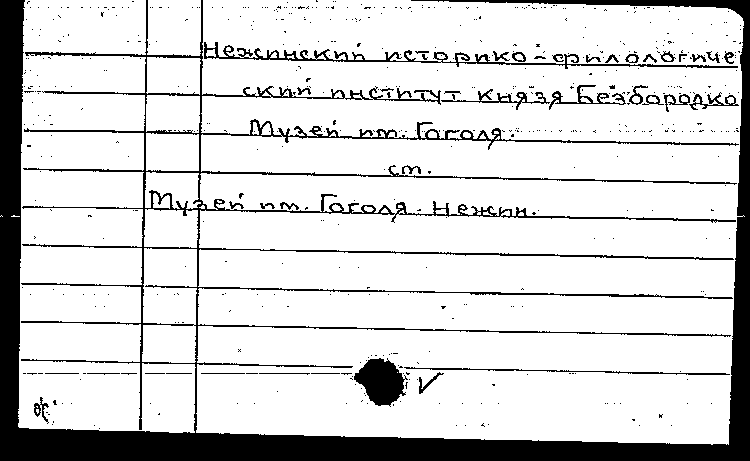 Нежинский историко-филологиче
ский институт князя Безбородко
Музей им. Гоголя.
см.
Музей им. Гоголя. Нежин.